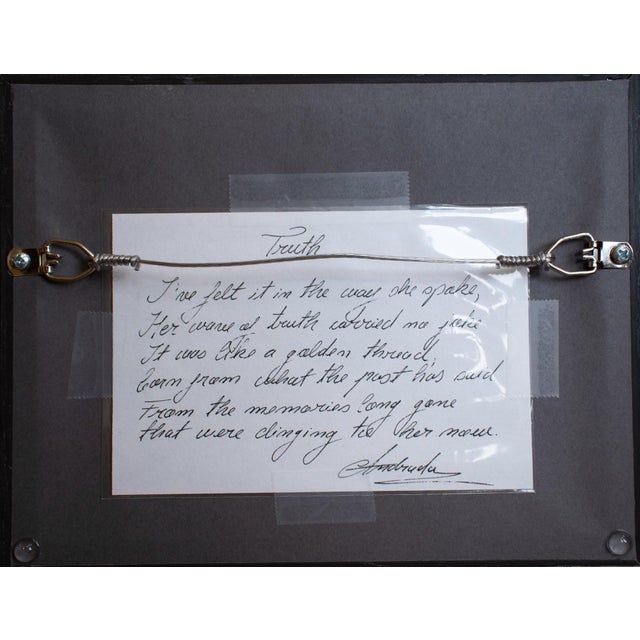 Truth
I've felt it in the way she spake,
Her wave of truth carried no joke
It was like a golden thread,
Born from what the past has said
From the memories long gone
that were clinging to her now.
Andrada